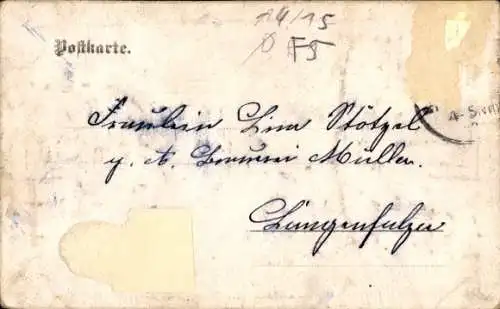 14/15
F5
Postkarte.
4-5.
Fräulein Lina Stötzel
z. A. Brauerei Müller.
Langensalza